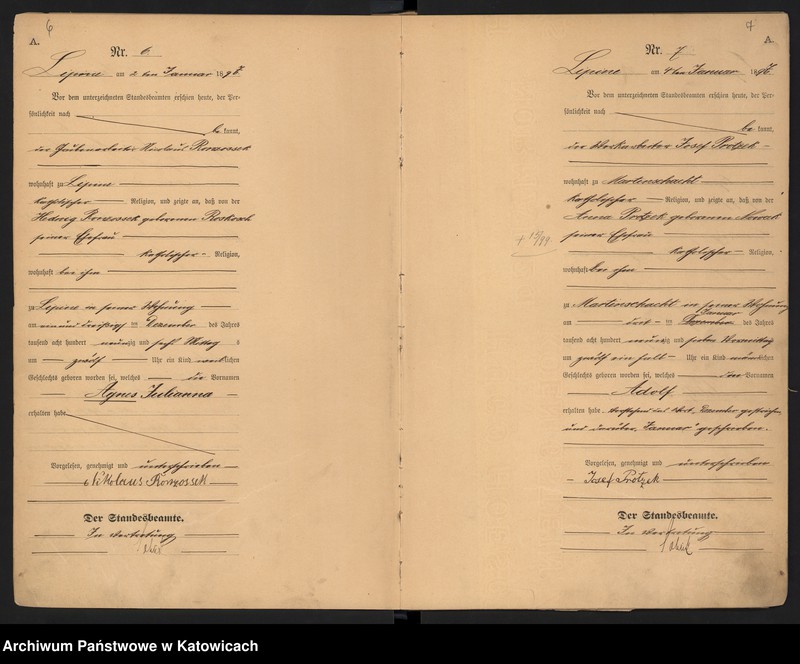 6
A.
Nr. 6
Lipine am 2 ten Januar 1897.
Vor dem unterzeichneten Standesbeamten erschien heute, der Persönlichkeit nach
be kannt,
der
wohnhaft zu Lipine
katholischer Religion, und zeigte an, daß von der
Hedwig geborenen
seiner Ehefrau
katholischer Religion,
wohnhaft bei ihm
zu Lipine in seiner Wohnung
am ein und dreißigsten Dezember des Jahres
tausend acht hundert neunzig und sechs Mittags
um zwölf Uhr ein Kind weiblichen
Geschlechts geboren worden sei, welches die Vornamen
Agnes Julianna
erhalten habe
Vorgelesen, genehmigt und unterschrieben
Nikolaus
Der Standesbeamte.
In Vertretung
7
A.
Nr. 7
Lipine am 4 ten Januar 1897.
Vor dem unterzeichneten Standesbeamten erschien heute, der Persönlichkeit nach
be kannt,
der Josef Protzek
wohnhaft zu Martinschacht
katholischer Religion, und zeigte an, daß von der
geborenen Nowak
seiner Ehefrau
katholischer Religion,
wohnhaft bei ihm
zu Martinschacht in seiner Wohnung
Januar
am des Jahres
tausend acht hundert neunzig und sieben Vormittag
um zwölf ein halb Uhr ein Kind männlichen
Geschlechts geboren worden sei, welches den Vornamen
Adolf
erhalten habe. Vorstehend das Wort „Dezember gestrichen
und darüber „Januar" geschrieben.
Vorgelesen, genehmigt und unterschrieben
Josef Protzek
Der Standesbeamte.
In Vertretung
Archiwum Państwowe w Katowicach